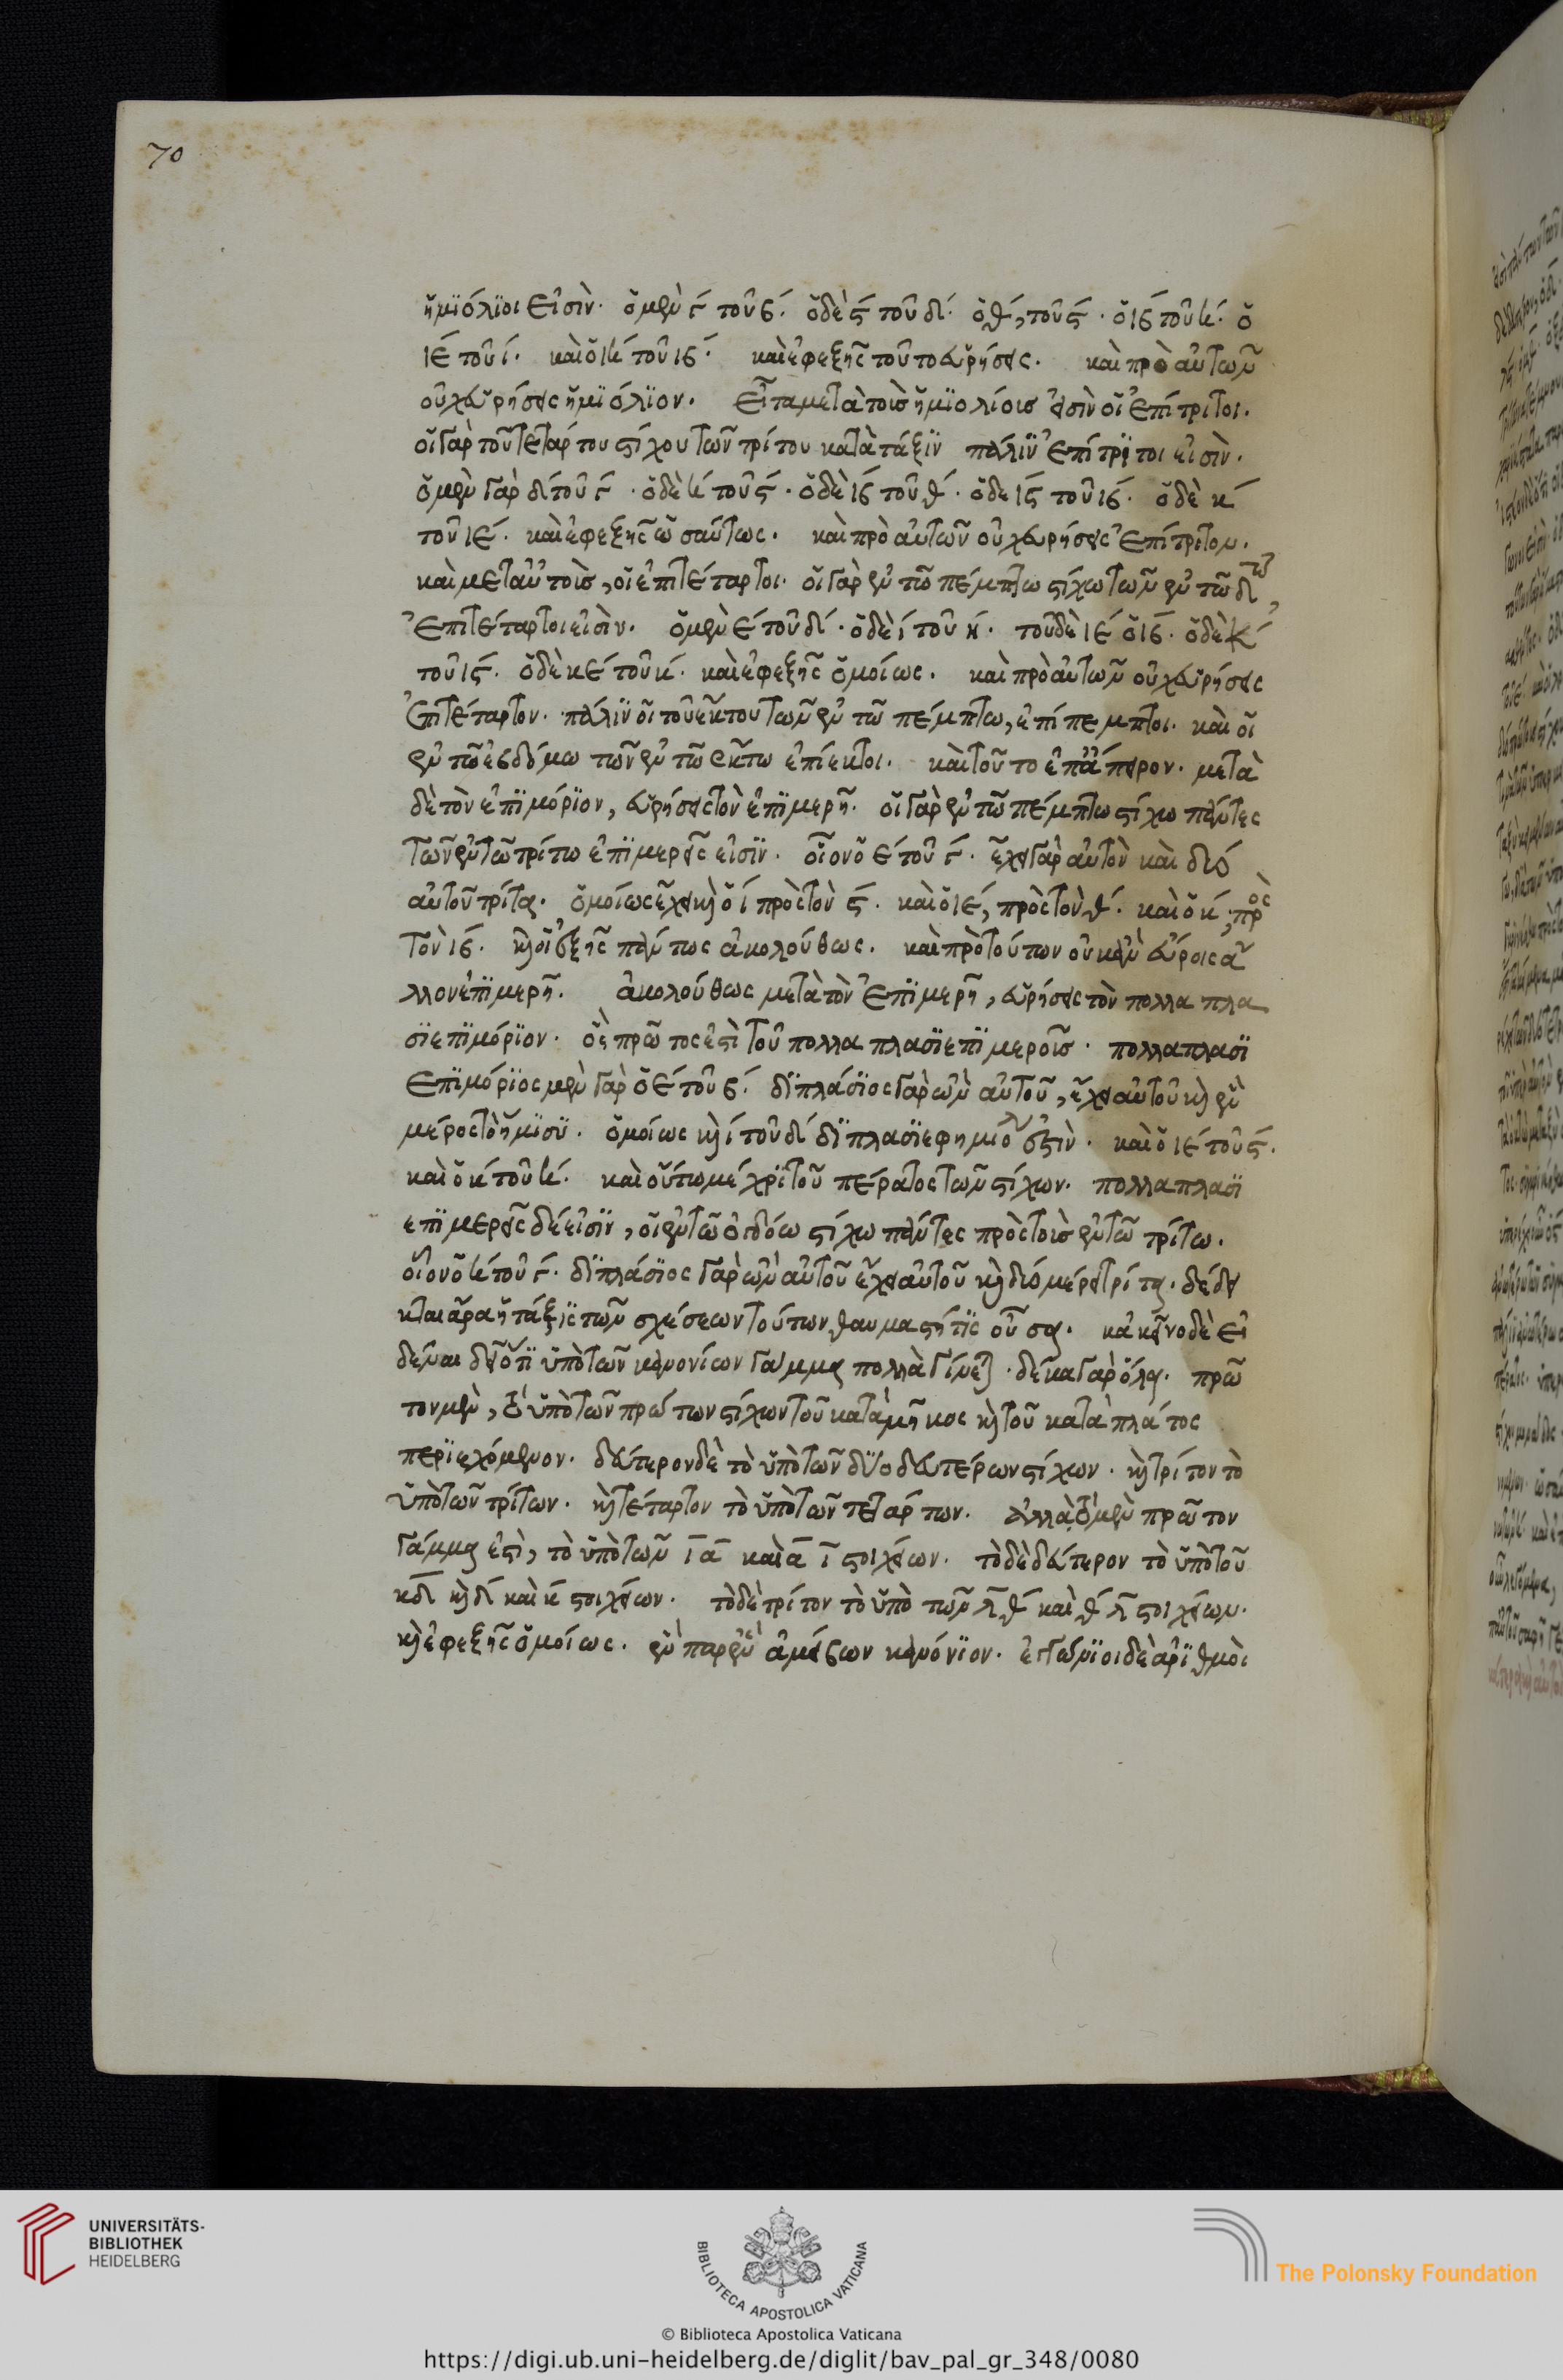 70
ἡμϊόλϊοι εἰσὶν· ὁ μὲν γ́ τοῦ β́· ὁ δὲ ϛ́ τοῦ δ́· ὁ θ́, τοῦ ϛ́· ὁ ιβ́ τοῦ ή· ὁ
ιέ τοῦ ί· καὶ ὁ ιή τοῦ ιβ́· καὶ ἐφεξῆς τοῦτο εὑρήσεις· καὶ πρὸ αὐτῶν
οὐχ εὑρήσεις ἡμϊόλϊον· εἶτα μετὰ τοῖς ἡμϊολίοις εἰσὶν οἱ ἐπίτριτοι·
οἱ γὰρ τοῦ τετάρτου στίχου τῶν τρίτου κατὰ τάξϊν πάλϊν ἐπίτρϊτοι εἰσὶν·
ὁ μὲν γὰρ δ́ τοῦ γ́· ὁ δὲ ή τοῦ ϛ́· ὁ δὲ ιβ́ τοῦ θ́· ὁ δὲ ιϛ́ τοῦ ιβ́· ὁ δὲ κ́
τοῦ ιέ· καὶ ἐφεξῆς ὡσαύτως· καὶ πρὸ αὐτῶν οὐχ εὑρήσεις ἐπίτριτον·
καὶ μετ' αὐτοῖς, οἱ ἐπιτέταρτοι· οἱ γὰρ ἐν τῶ πέμπτω στίχω τῶν ἐν τῶ δτω
ἐπιτέταρτοι εἰσὶν· ὁ μὲν έ τοῦ δ́· ὁ δὲ ί τοῦ ή· τοῦ δὲ ιέ ὁ ιβ́· ὁ δὲ κ́
τοῦ ιϛ́· ὁ δὲ κέ τοῦ κ́· καὶ ἐφεξῆς ὁμοίως· καὶ πρὸ αὐτῶν οὐχ εὑρήσεις
ἐπιτέταρτον· πάλϊν οἱ τοῦ ἕκτου τῶν ἐν τῶ πέμπτω, ἐπίπεμπτοι· καὶ οἱ
ἐν τῶ ἑβδόμω τῶν ἐν τῶ ἕκτω ἐπίεκτοι· καὶ τοῦτο ἐπ' ἄπειρον· μετὰ
δὲ τὸν ἐπϊμόρϊον, εὑρήσεις τὸν ἐπϊμερῆ· οἱ γὰρ ἐν τῶ πέμπτω στίχω πάντες
τῶν ἐν τῶ τρίτω ἐπϊμερεῖς εἰσϊν· οἷον ὁ έ τοῦ γ́· ἔχει γὰρ αὐτὸν καὶ δύο
αὐτοῦ τρίτα· ὁμοίως ἔχει καὶ ὁ ί πρὸς τὸν ϛ́· καὶ ὁ ιέ, πρὸς τὸν θ́· καὶ ὁ κ́, πρὸς
τὸν ιβ́· καὶ οἱ ἑξῆς πάντως ἀκολούθως· καὶ πρὸ τούτων οὐκ ἂν εὕροις ἄ
λλον ἐπϊμερῆ· ἀκολούθως μετὰ τὸν ἐπϊμερῆ, εὑρήσεις τὸν πολλαπλα
σϊεπϊμόρϊον· ὃς πρῶτος ἐστὶ τοῦ πολλαπλασϊεπϊμεροῦς· πολλαπλασϊ
επϊμόρϊος μὲν γὰρ ὁ έ τοῦ β́· δϊπλάσϊος γὰρ ὢν αὐτοῦ, ἔχει αὐτοῦ καὶ ἓν
μέρος τὸ ἥμϊσϋ· ὁμοίως καὶ ί τοῦ δ́ δϊπλασϊεφημιόλ ἐστὶν· καὶ ὁ ιέ τοῦ ϛ́·
καὶ ὁ κ́ τοῦ ή· καὶ οὕτω μέχρϊ τοῦ πέρατος τῶν στίχων· πολλαπλασϊ
επϊμερεῖς δέ εἰσϊν, οἱ ἐν τῶ ὀγδόω στίχω πάντες πρὸς τοῖς ἐν τῶ τρίτω·
οἷον ὁ ή τοῦ γ́· δϊπλάσϊος γὰρ ὢν αὐτοῦ ἔχει αὐτοῦ καὶ δύο μέρει τρίτα· δέδει
κται ἄρα ἡ τάξϊς τῶν σχέσεων τούτων θαυμαστή τϊς οὖσα· κἀκεῖνο δὲ εἰ
δέναι δεῖ ὅτϊ ὑπὸ τῶν κανονίων γάμμα πολλὰ γίνεται· δέκα γὰρ ὅλα· πρῶ
τον μὲν, τὸ ὑπὸ τῶν πρώτων στίχων τοῦ κατὰ μῆκος καὶ τοῦ κατὰ πλάτος
περϊεχόμενον· δεύτερον δὲ τὸ ὑπὸ τῶν δύο δευτέρων στίχων· καὶ τρίτον τὸ
ὑπὸ τῶν τρίτων· καὶ τέταρτον τὸ ὑπὸ τῶν τετάρτων· ἀλλὰ τὸ μὲν πρῶτον
γάμμα ἐστὶ, τὸ ὑπὸ τῶν ι̅ α̅ καὶ α̅ ι̅ στοιχείων· τὸ δὲ δεύτερον τὸ ὑπὸ τοῦ
κ δ́ καὶ δ́ καὶ κ́ στοιχείων· τὸ δὲ τρίτον τὸ ὑπὸ τῶν λ̅ θ́ καὶ θ́ λ̅ στοιχείων·
καὶ ἐφεξῆς ὁμοίως· ἓν παρ' ἓν ἀμείβων κανόνϊον· ἐγγώνϊοι δὲ ἀρϊθμοὶ
UNIVERSITÄTS-
BIBLIOTHEK
HEIDELBERG
BIBLIOTECA APOSTOLICA VATICANA
© Biblioteca Apostolica Vaticana
The Polonsky Foundation
https://digi.ub.uni-heidelberg.de/diglit/bav_pal_gr_348/0080